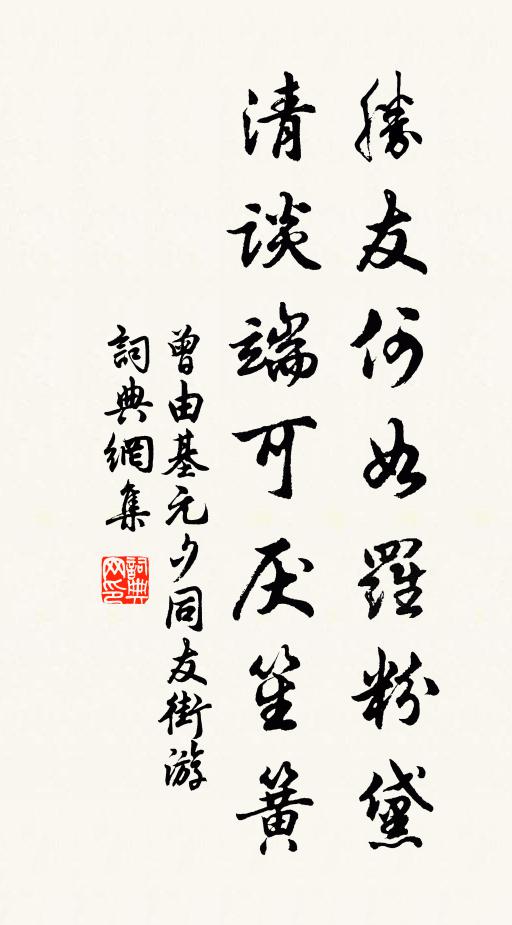 勝友何如羅粉黛
清談端可厌笙簧
曾由基元夕同友街游
詞典網集
詞典网印